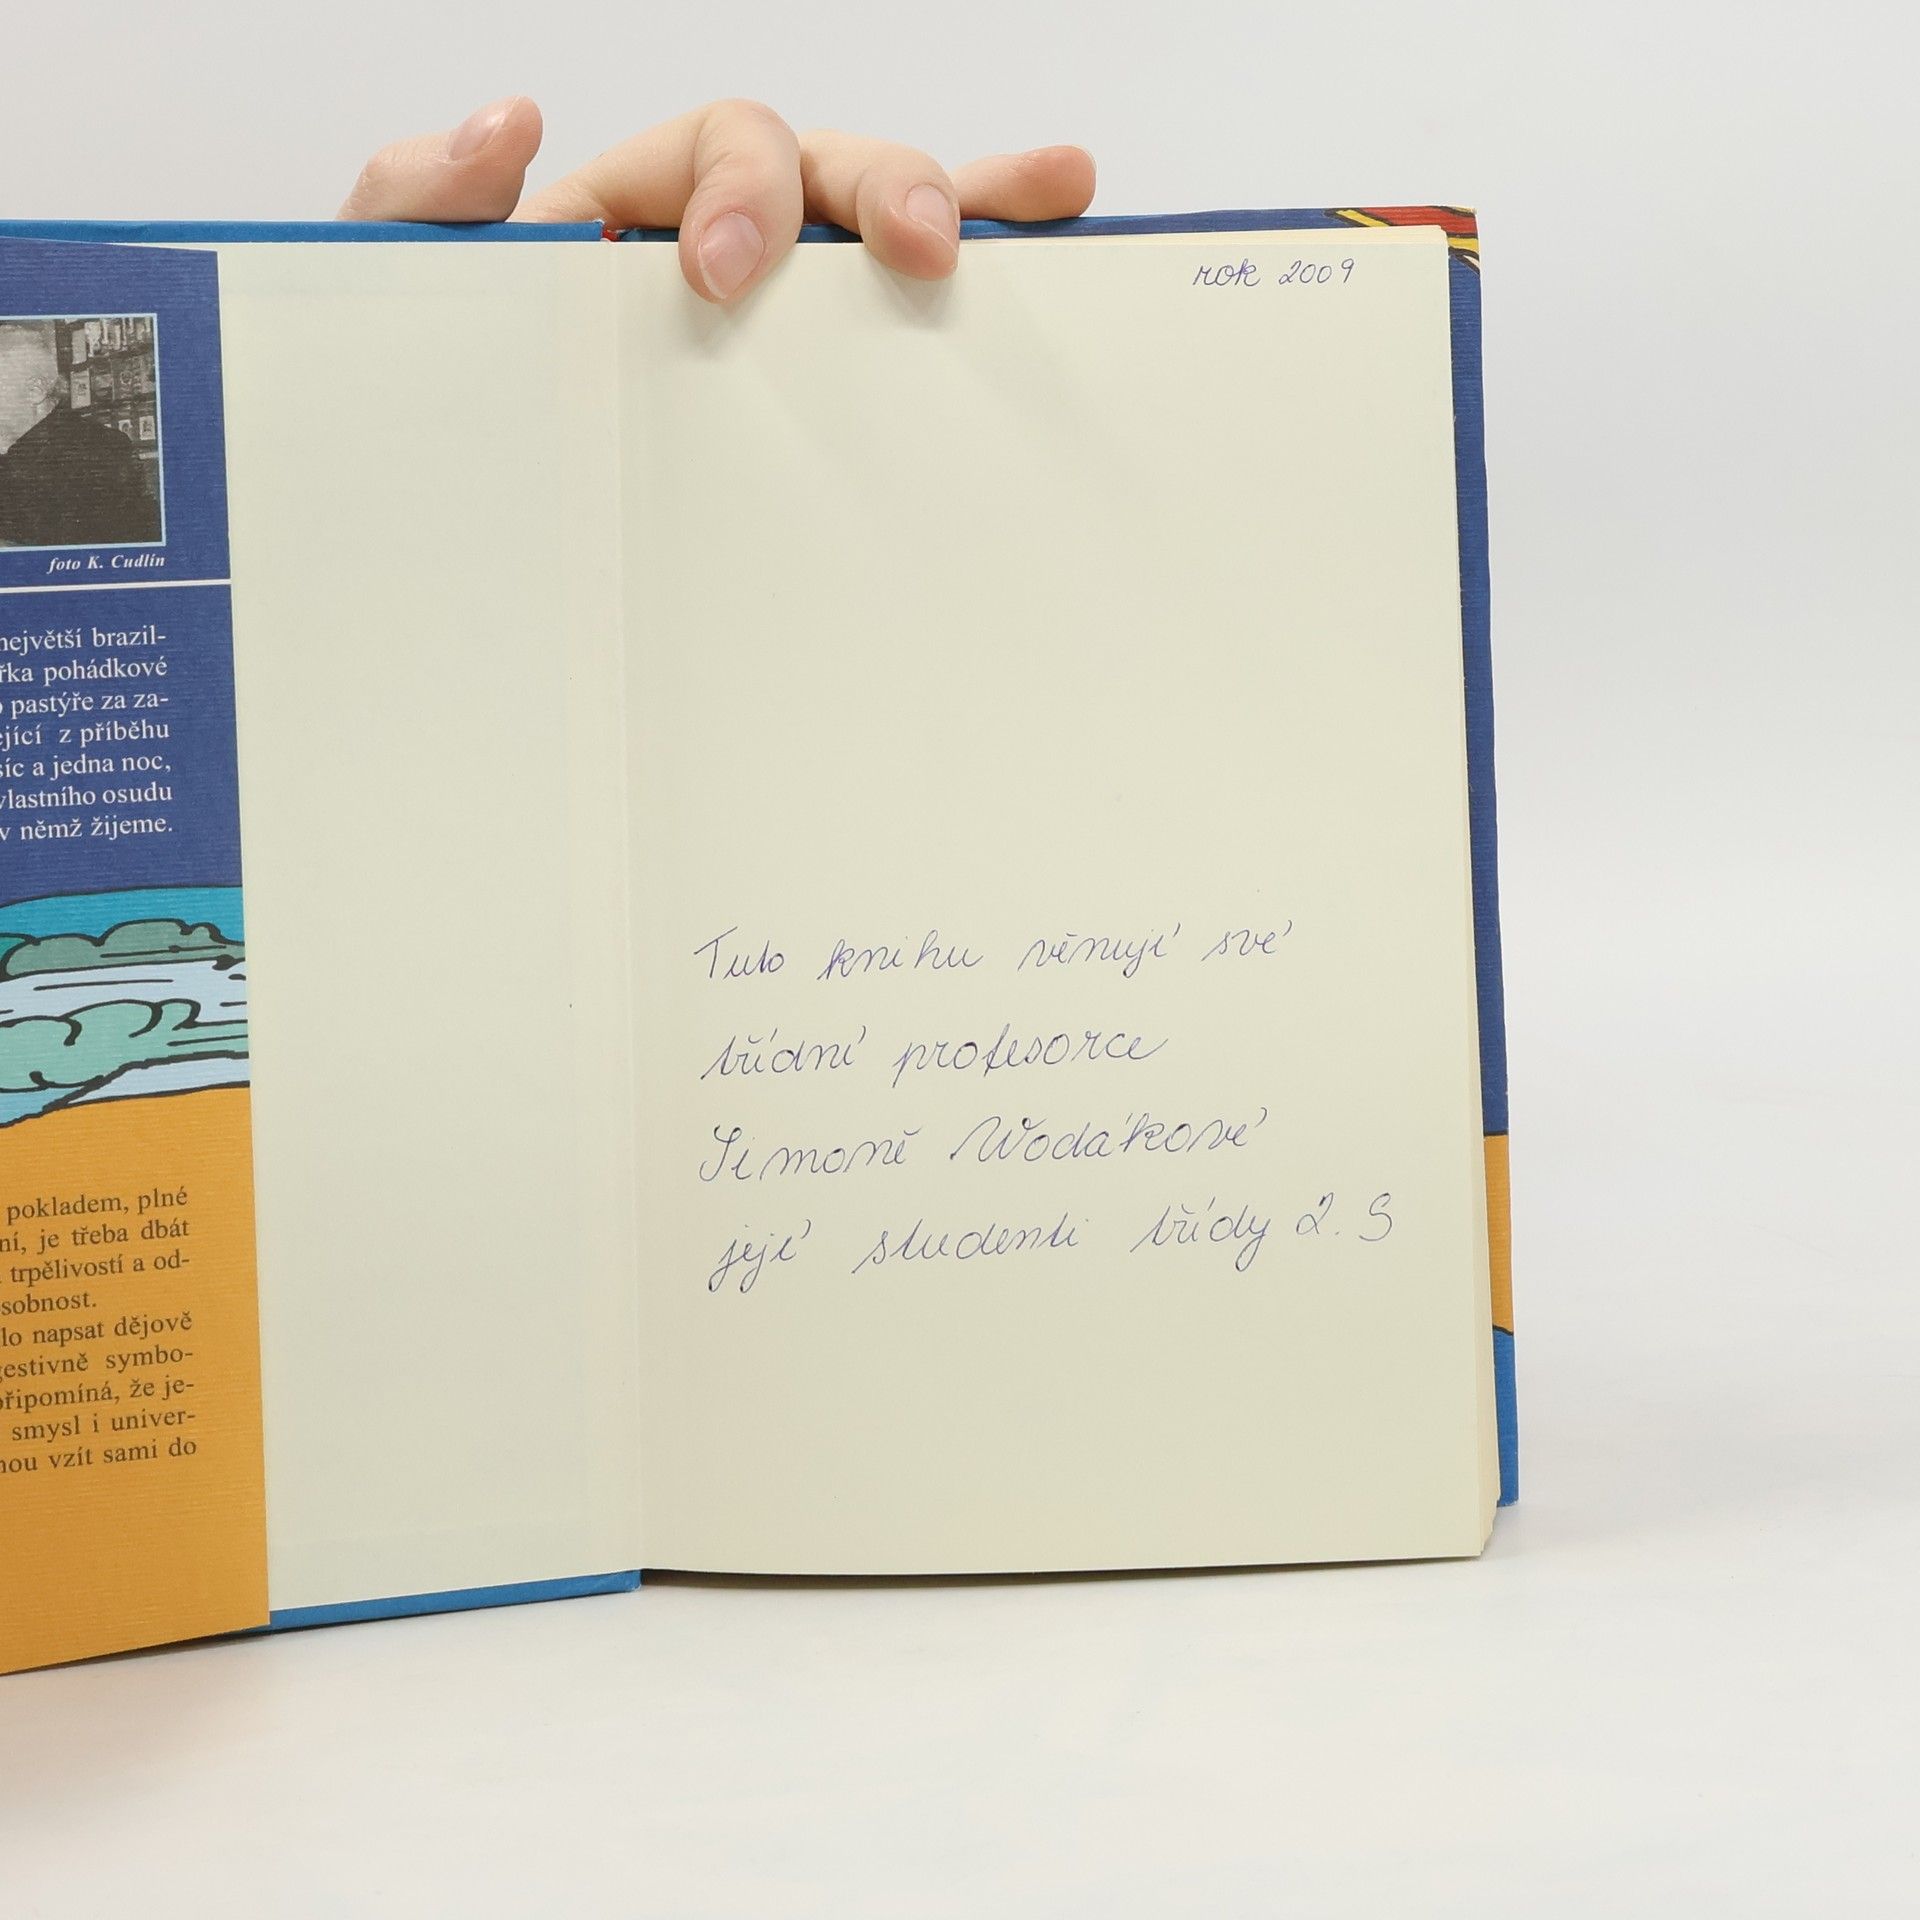 foto K. Cudlín
největší brazil-
řka pohádkové
o pastýře za za-
ející z příběhu
síc a jedna noc,
vlastního osudu
v němž žijeme.
pokladem, plné
ní, je třeba dbát
trpělivostí a od-
sobnost.
lo napsat dějově
gestivně symbo-
připomíná, že je-
smysl i univer-
nou vzít sami do
rok 2009
Tuto knihu věnují své
třídní profesorce
Simoně Wodákové
její studenti třídy 2. S